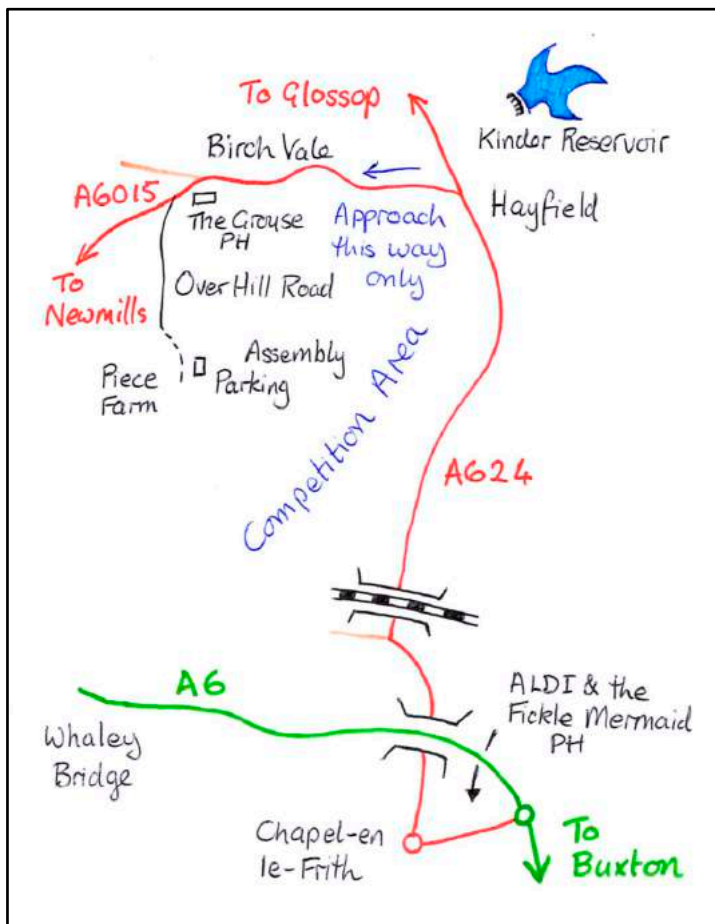 To Glossop
Kinder Reservoir
Birch Vale
A6015
Hayfield
The Grouse
PH
Approach
this way
only
To
Newmills
Over Hill Road
Assembly
Parking
Piece
Farm
Competition Area
A624
A6
ALDI & the
Fickle Mermaid
PH
Whaley
Bridge
Chapel-en
le-Frith
To
Buxton